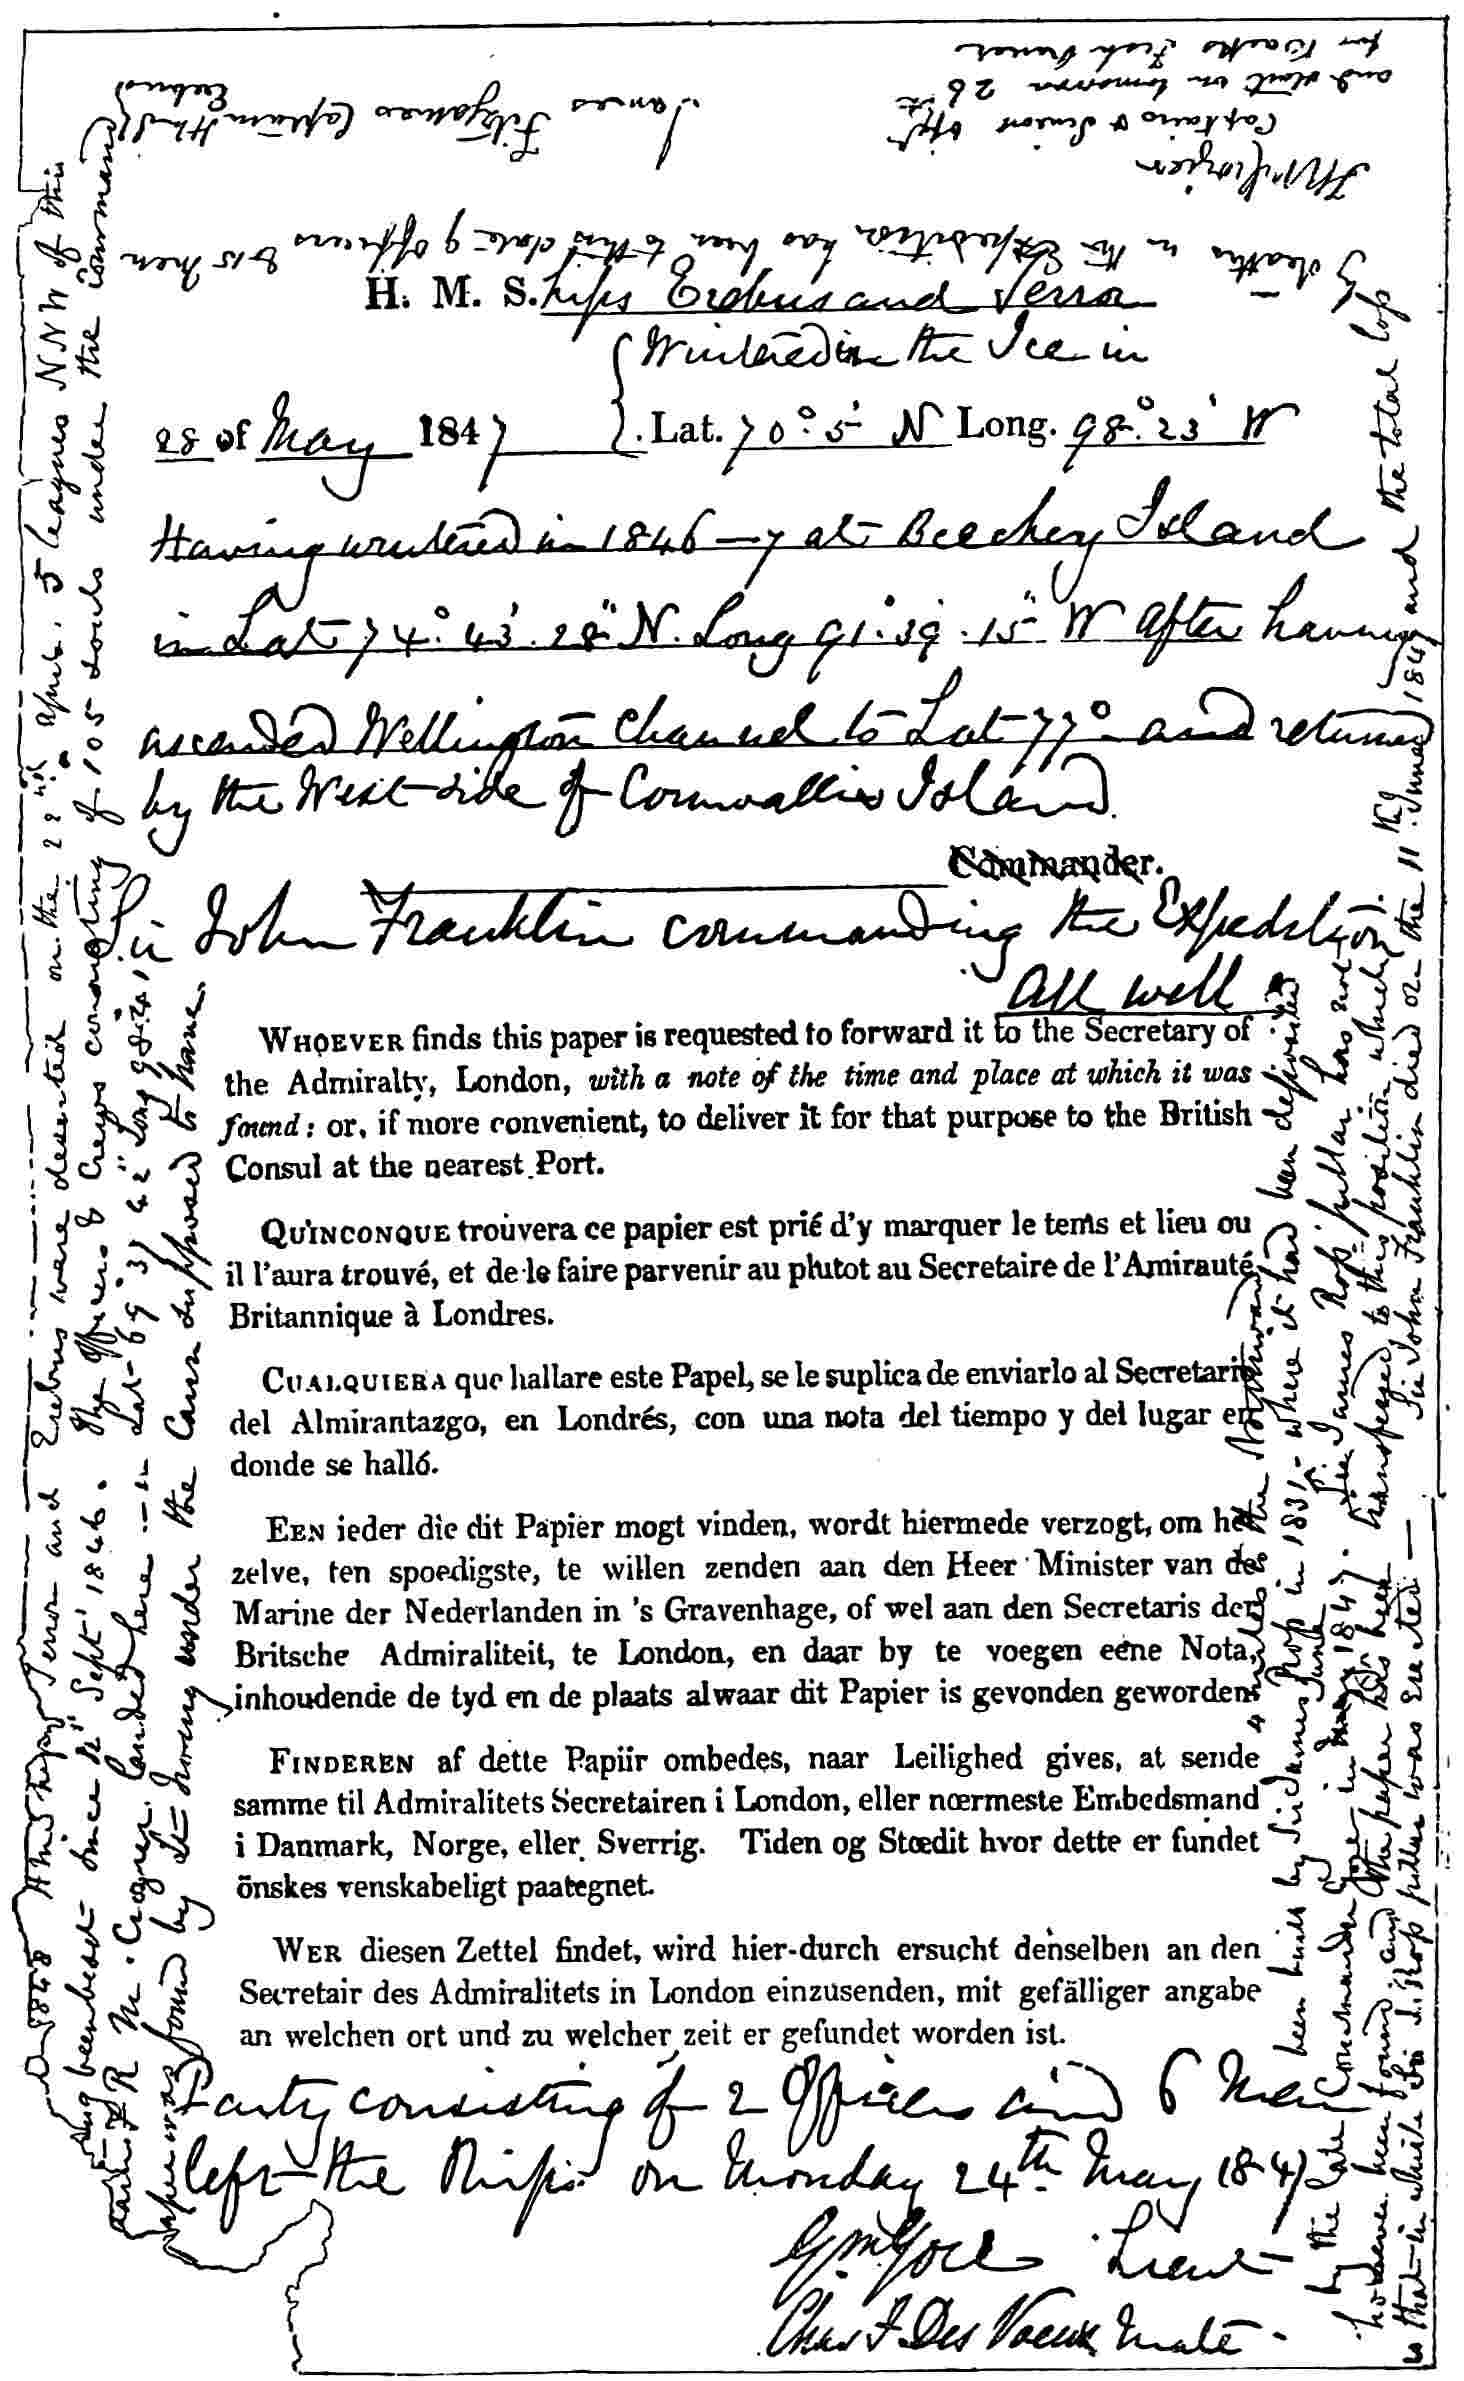 H. M. S. hips Erebus and Terror
Wintered in the Ice in
28 of May 1847 Lat. 70° 5' N Long. 98° 23' W
Having wintered in 1846–7 at Beechey Island
in Lat 74° 43' 28" N. Long 91° 39' 15" W after having
ascended Wellington Channel to Lat 77° and returned
by the West side of Cornwallis Island.
Commander.
Sir John Franklin commanding the Expedition.
All well
WHOEVER finds this paper is requested to forward it to the Secretary of
the Admiralty, London, with a note of the time and place at which it was
found: or, if more convenient, to deliver it for that purpose to the British
Consul at the nearest Port.
QUINCONQUE trouvera ce papier est prié d'y marquer le tems et lieu ou
il l'aura trouvé, et de le faire parvenir au plutot au Secretaire de l'Amirauté
Britannique à Londres.
CUALQUIERA que hallare este Papel, se le suplica de enviarlo al Secretario
del Almirantazgo, en Londrés, con una nota del tiempo y del lugar en
donde se halló.
EEN ieder die dit Papier mogt vinden, wordt hiermede verzogt, om het
zelve, ten spoedigste, te willen zenden aan den Heer Minister van de
Marine der Nederlanden in 's Gravenhage, of wel aan den Secretaris der
Britsche Admiraliteit, te London, en daar by te voegen eene Nota,
inhoudende de tyd en de plaats alwaar dit Papier is gevonden geworden
FINDEREN af dette Papiir ombedes, naar Leilighed gives, at sende
samme til Admiralitets Secretairen i London, eller nœrmeste Embedsmand
i Danmark, Norge, eller Sverrig. Tiden og Stœdit hvor dette er fundet
önskes venskabeligt paategnet.
WER diesen Zettel findet, wird hier-durch ersucht denselben an den
Secretair des Admiralitets in London einzusenden, mit gefälliger angabe
an welchen ort und zu welcher zeit er gefundet worden ist.
Party consisting of 2 Officers and 6 Men
left the Ships on Monday 24th May 1847
Gm Gore Lieut
Chas F. Des Voeux Mate.
1848 HMShips Terror and Erebus were deserted on the 22nd April, 5 leagues NNW of this
ing been beset since 12th Septr 1846. The Officers & Crews consisting of 105 souls under the command
tain F.R.M. Crozier landed here – in Lat 69° 37' 42" Long 98° 41'
aper was found by Lt Irving under the Cairn supposed to have
4 miles to the Northward
been built by Sir James Ross in 1831 – where it had been deposited
June
by the late Commander Gore in May 1847. Sir James Ross' pillar has not
however been found and the paper has been transferred to this position which
is that in which Sir J. Ross pillar was erected —
Sir John Franklin died on the 11th June 1847 and the total loss
by deaths in the Expedition has been to this date 9 officers & 15 men
James Fitzjames Captain HMS
Erebus
FRM Crozier
Captain & Senior Offr
and start on tomorrow 26th
for Backs Fish River